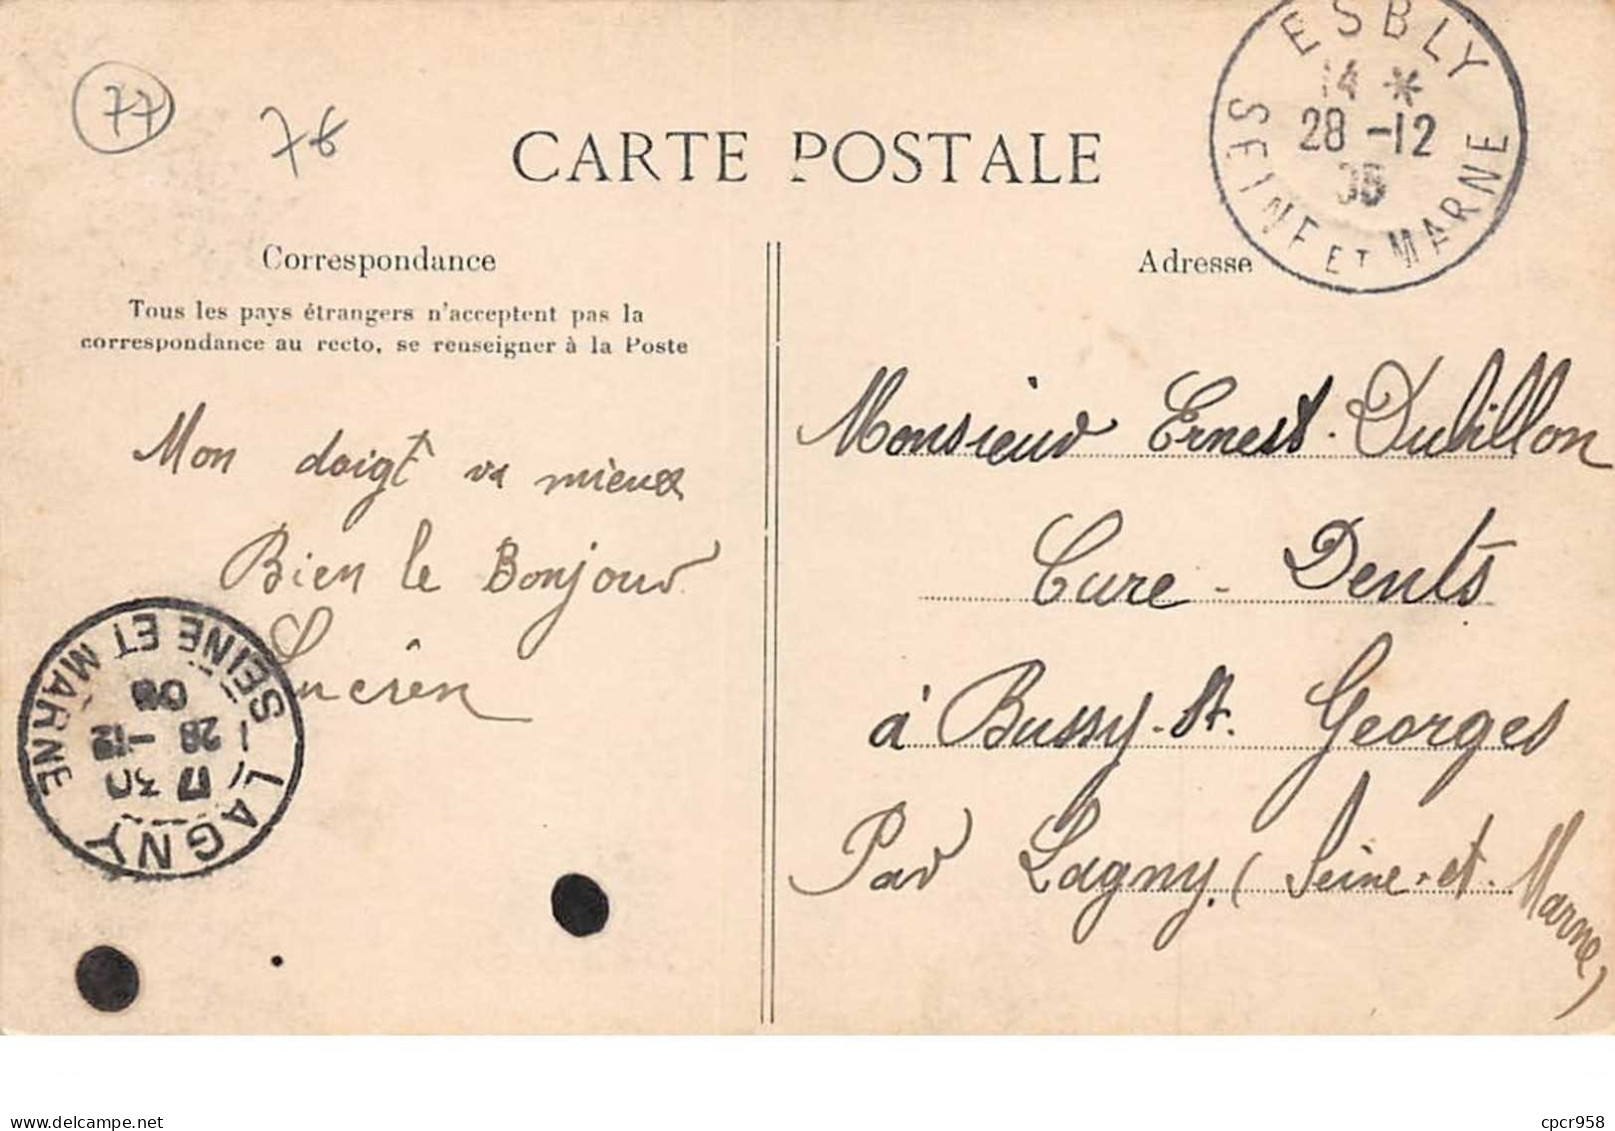 77
76
CARTE POSTALE
ESBLY
14 *
28 -12
SEINE ET MARNE
Correspondance
Tous les pays étrangers n'acceptent pas la
correspondance au recto, se renseigner à la Poste
Mon doigt va mieux
Bien le Bonjour
Adresse
Monsieur Ernest Dubillon
Cure-Dents
à Bussy-St. Georges
Par Lagny, (Seine-et-Marne)
LAGNY
17 30
28 -12
SEINE ET MARNE
cpcr958